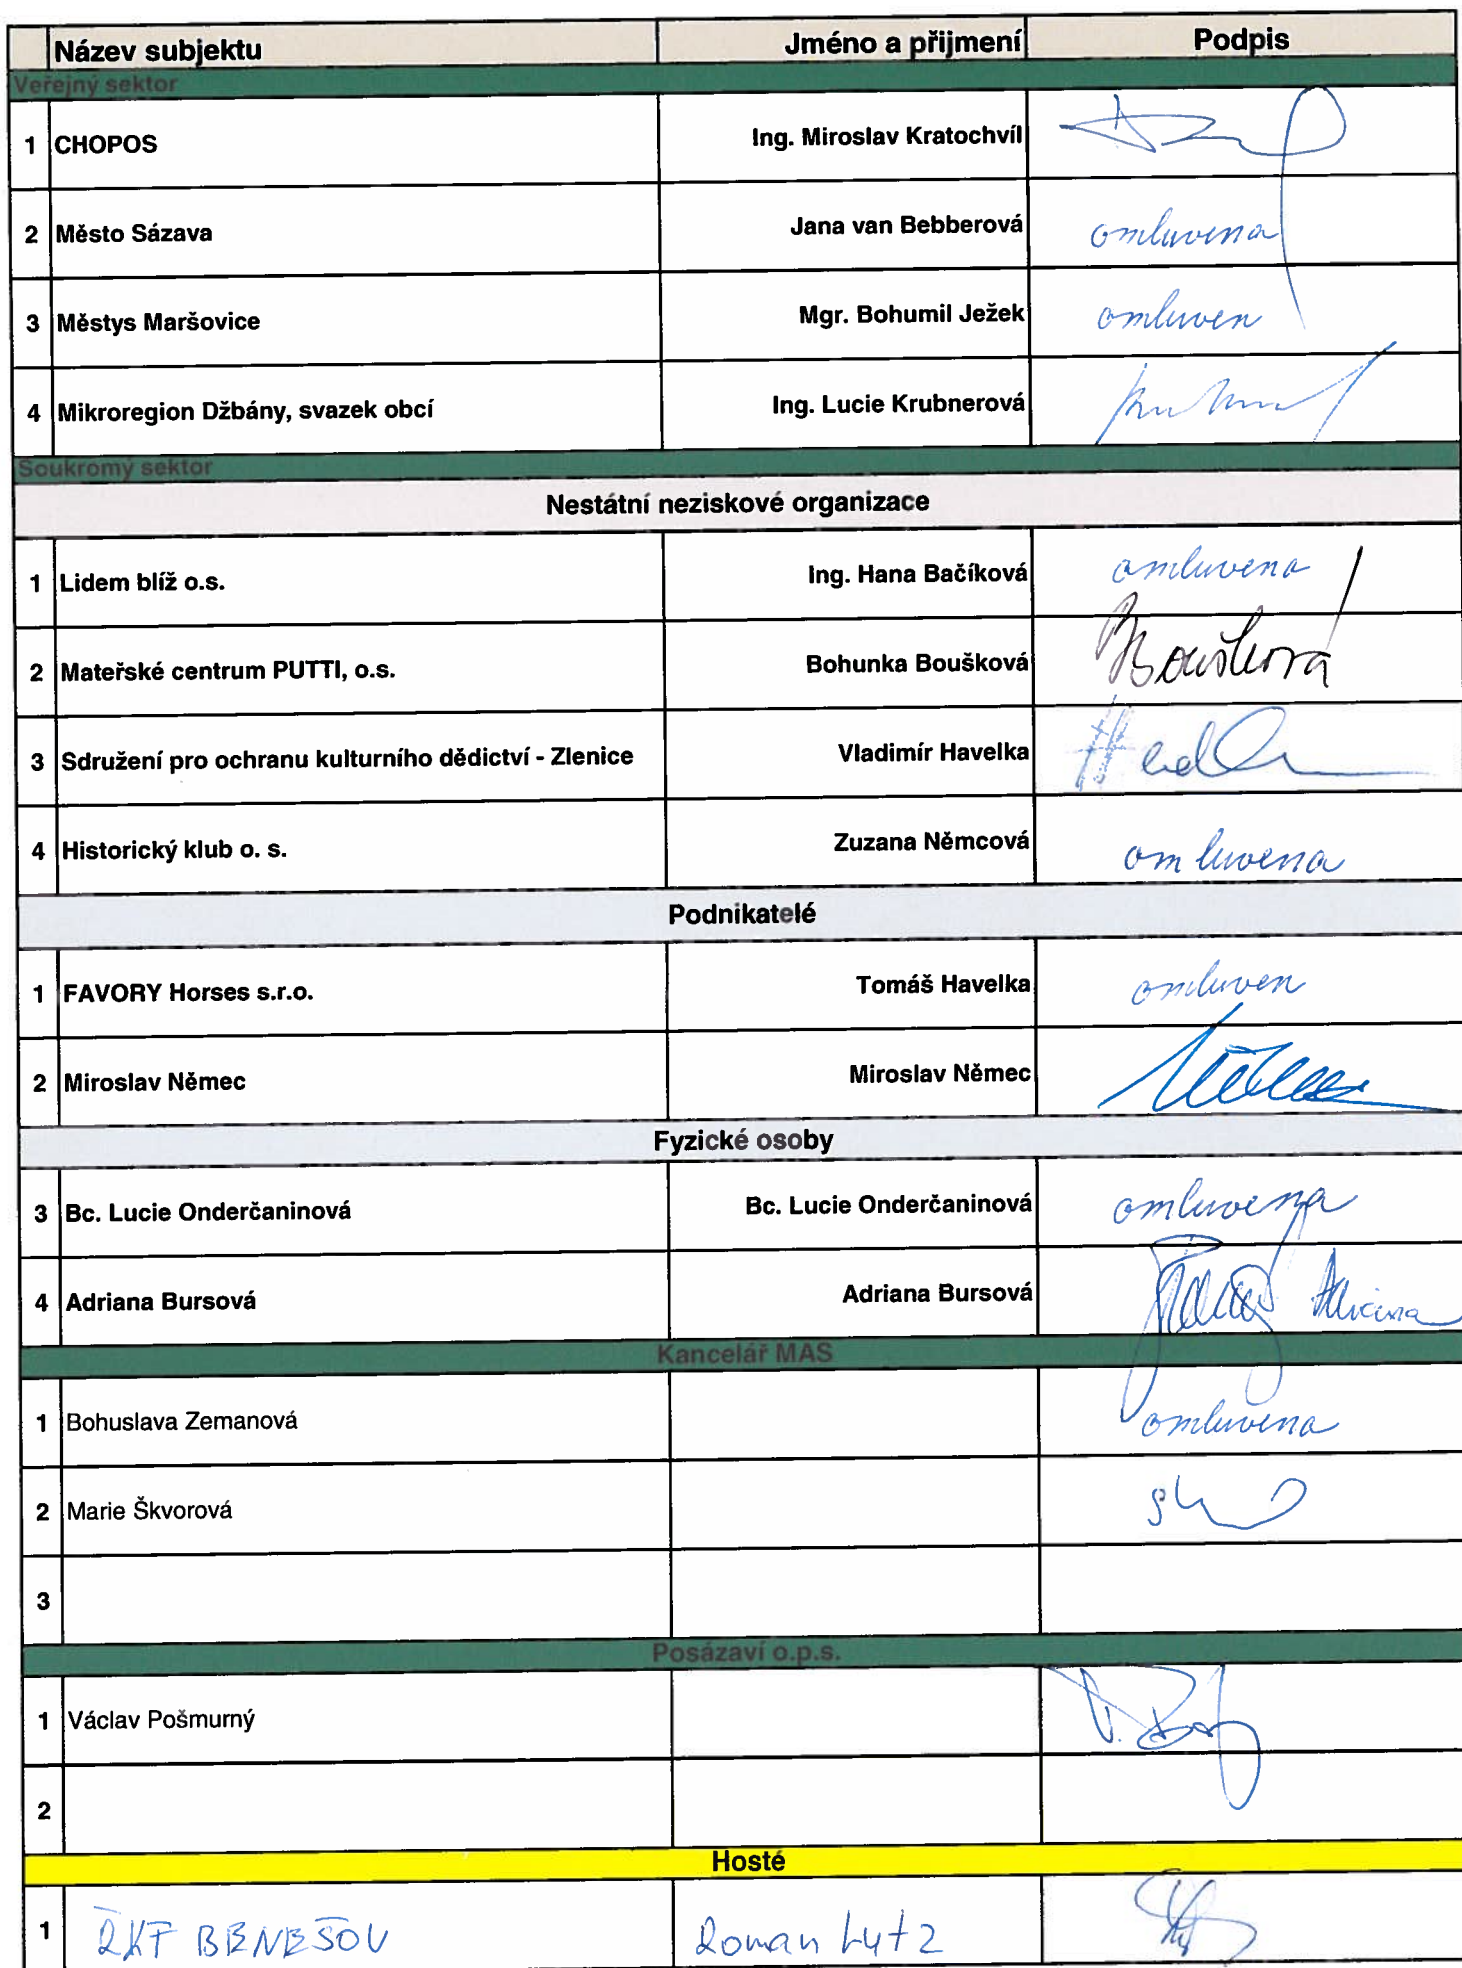 Název subjektu Jméno a přijmení Podpis
Veřejný sektor
1 CHOPOS Ing. Miroslav Kratochvíl
2 Město Sázava Jana van Bebberová omluvena
3 Městys Maršovice Mgr. Bohumil Ježek omluven
4 Mikroregion Džbány, svazek obcí Ing. Lucie Krubnerová
Soukromý sektor
Nestátní neziskové organizace
1 Lidem blíž o.s. Ing. Hana Bačíková omluvena
2 Mateřské centrum PUTTI, o.s. Bohunka Boušková Boušková
3 Sdružení pro ochranu kulturního dědictví - Zlenice Vladimír Havelka
4 Historický klub o. s. Zuzana Němcová omluvena
Podnikatelé
1 FAVORY Horses s.r.o. Tomáš Havelka omluven
2 Miroslav Němec Miroslav Němec
Fyzické osoby
3 Bc. Lucie Onderčaninová Bc. Lucie Onderčaninová omluvena
4 Adriana Bursová Adriana Bursová
Kancelář MAS
1 Bohuslava Zemanová omluvena
2 Marie Škvorová
3
Posázaví o.p.s.
1 Václav Pošmurný
2
Hosté
1 ŘKF BENEŠOV Roman Lutz